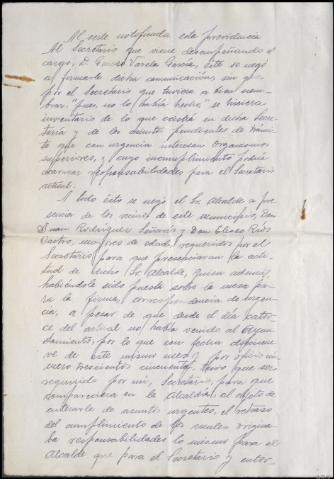 Al serle notificada esta providencia
Al Secretario que viene desempeñando el
cargo, D. Varela García, éste se negó
a firmarle dicha comunicación, sin que
por el Secretario que tuviera a bien nom-
brar, "pues no lo había hecho" se hiciera
inventario de lo que existía en dicha Secre-
taría y de los asuntos pendientes de trámi-
te que con urgencia interesan organismos
superiores, y cuyo incumplimiento podría
acarrear responsabilidades para el Secretario
actual.
A todo ésto se negó el Sr. Alcalde a pre-
sencia de los vecinos de este municipio, Don
Juan Rodríguez y Don Eliseo Ríos
Castro, mayores de edad, requeridos por el
Secretario para que presenciaran la acti-
tud de dicho Sr. Alcalde, quien además,
habiéndole sido puesta sobre la mesa pa-
ra la firma, correspondencia de urgen-
cia, a pesar de que desde el día cator-
ce del actual no había venido al Ayun-
tamiento, por lo que con fecha diecinue-
ve de este mismo mes y por oficio nú-
mero trescientos cincuenta, tuvo que ser
requerido por mí, Secretario, para que
compareciera en la Alcaldía, al objeto de
enterarle de asuntos urgentes, el retraso
del cumplimiento de los cuales origina-
ba responsabilidades lo mismo para el
Alcalde que para el Secretario y